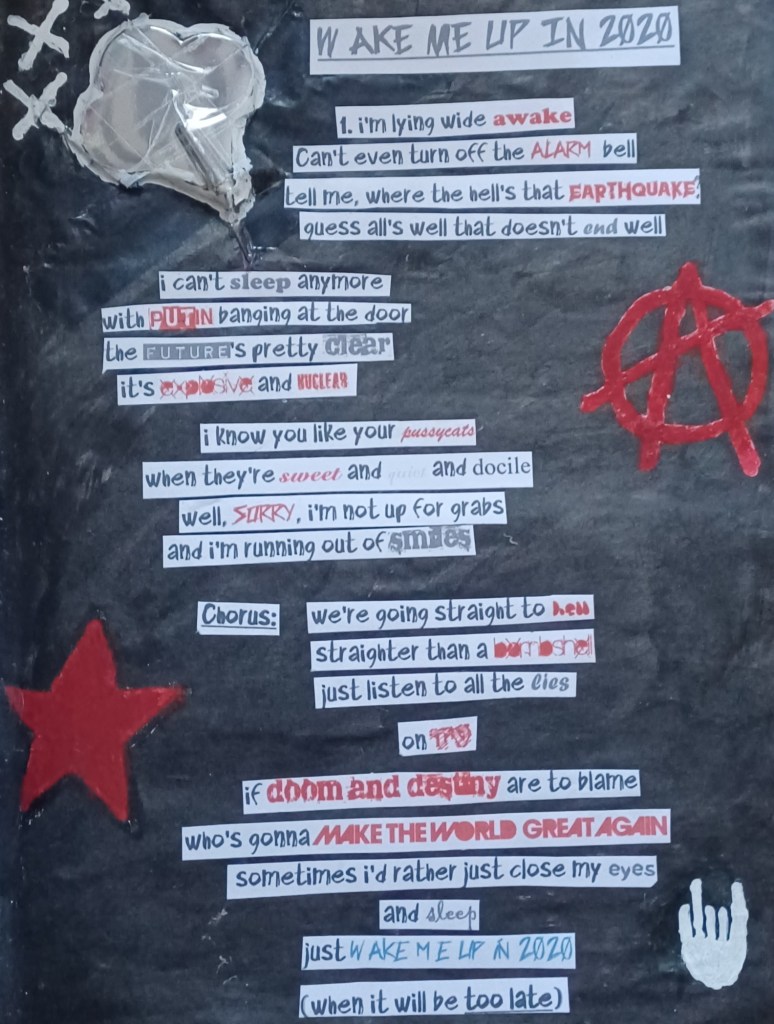 WAKE ME UP IN 2020
1. i'm lying wide awake
Can't even turn off the ALARM bell
tell me, where the hell's that EARTHQUAKE?
guess all's well that doesn't end well
i can't sleep anymore
with PUTIN banging at the door
the FUTURE's pretty clear
it's explosive and NUCLEAR
i know you like your pussycats
when they're sweet and quiet and docile
well, SORRY, i'm not up for grabs
and i'm running out of smiles
Chorus: we're going straight to hell
straighter than a bombshell
just listen to all the lies
on TV
if doom and destiny are to blame
who's gonna MAKE THE WORLD GREAT AGAIN
sometimes i'd rather just close my eyes
and sleep
just WAKE ME UP IN 2020
(when it will be too late)